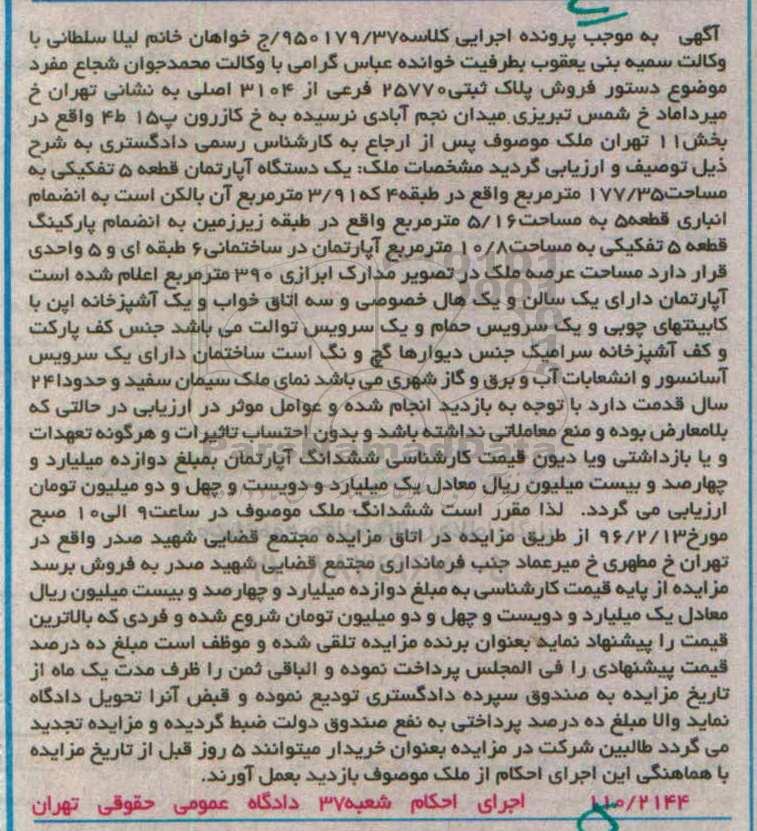 آگهی به موجب پرونده اجرایی کلاسه۹۵۰۱۷۹/۳۷/ج خواهان خانم لیلا سلطانی با
وکالت سمیه بنی یعقوب بطرفیت خوانده عباس گرامی با وکالت محمدجوان شجاع مفرد
موضوع دستور فروش پلاک ثبتی۲۵۷۷۰ فرعی از ۳۱۰۴ اصلی به نشانی تهران خ
میرداماد خ شمس تبریزی میدان نجم آبادی نرسیده به خ کازرون پ۱۵ ط۴ واقع در
بخش۱۱ تهران ملک موصوف پس از ارجاع به کارشناس رسمی دادگستری به شرح
ذیل توصیف و ارزیابی گردید مشخصات ملک: یک دستگاه آپارتمان قطعه ۵ تفکیکی به
مساحت۱۷۷/۳۵ مترمربع واقع در طبقه۴ که۳/۹۱ مترمربع آن بالکن است به انضمام
انباری قطعه۵ به مساحت۵/۱۶ مترمربع واقع در طبقه زیرزمین به انضمام پارکینگ
قطعه ۵ تفکیکی به مساحت۱۰/۸ مترمربع آپارتمان در ساختمانی۶ طبقه ای و ۵ واحدی
قرار دارد مساحت عرصه ملک در تصویر مدارک ابرازی ۳۹۰ مترمربع اعلام شده است
آپارتمان دارای یک سالن و یک هال خصوصی و سه اتاق خواب و یک آشپزخانه اپن با
کابینتهای چوبی و یک سرویس حمام و یک سرویس توالت می باشد جنس کف پارکت
و کف آشپزخانه سرامیک جنس دیوارها گچ و نگ است ساختمان دارای یک سرویس
آسانسور و انشعابات آب و برق و گاز شهری می باشد نمای ملک سیمان سفید و حدودا۲۴
سال قدمت دارد با توجه به بازدید انجام شده و عوامل موثر در ارزیابی در حالتی که
بلامعارض بوده و منع معاملاتی نداشته باشد و بدون احتساب تاثیرات و هرگونه تعهدات
و یا بازداشتی ویا دیون قیمت کارشناسی ششدانگ آپارتمان بمبلغ دوازده میلیارد و
چهارصد و بیست میلیون ریال معادل یک میلیارد و دویست و چهل و دو میلیون تومان
ارزیابی می گردد. لذا مقرر است ششدانگ ملک موصوف در ساعت۹ الی۱۰ صبح
مورخ۹۶/۲/۱۳ از طریق مزایده در اتاق مزایده مجتمع قضایی شهید صدر واقع در
تهران خ مطهری خ میرعماد جنب فرمانداری مجتمع قضایی شهید صدر به فروش برسد
مزایده از پایه قیمت کارشناسی به مبلغ دوازده میلیارد و چهارصد و بیست میلیون ریال
معادل یک میلیارد و دویست و چهل و دو میلیون تومان شروع شده و فردی که بالاترین
قیمت را پیشنهاد نماید بعنوان برنده مزایده تلقی شده و موظف است مبلغ ده درصد
قیمت پیشنهادی را فی المجلس پرداخت نموده و الباقی ثمن را ظرف مدت یک ماه از
تاریخ مزایده به صندوق سپرده دادگستری تودیع نموده و قبض آنرا تحویل دادگاه
نماید والا مبلغ ده درصد پرداختی به نفع صندوق دولت ضبط گردیده و مزایده تجدید
می گردد طالبین شرکت در مزایده بعنوان خریدار میتوانند ۵ روز قبل از تاریخ مزایده
با هماهنگی این اجرای احکام از ملک موصوف بازدید بعمل آورند.
۱۱۰/۲۱۴۴ اجرای احکام شعبه۳۷ دادگاه عمومی حقوقی تهران